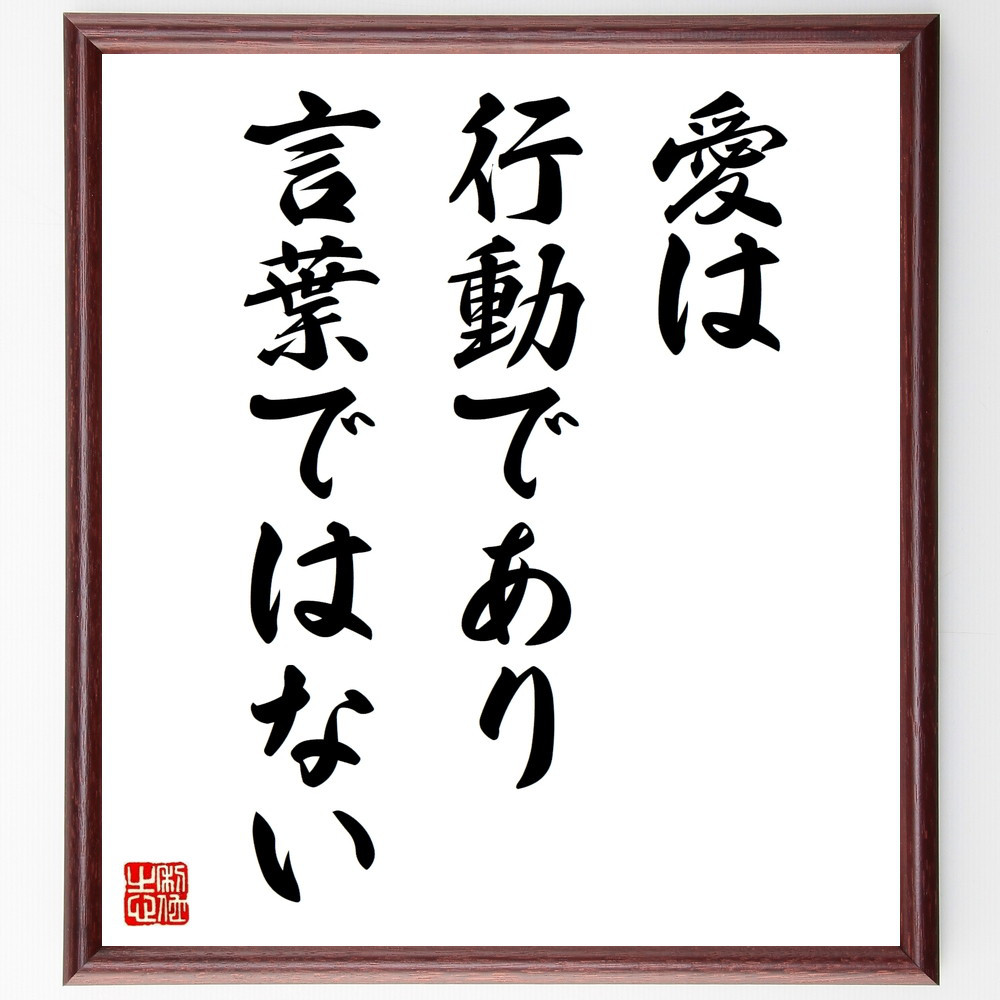 愛は
行動であり
言葉ではない